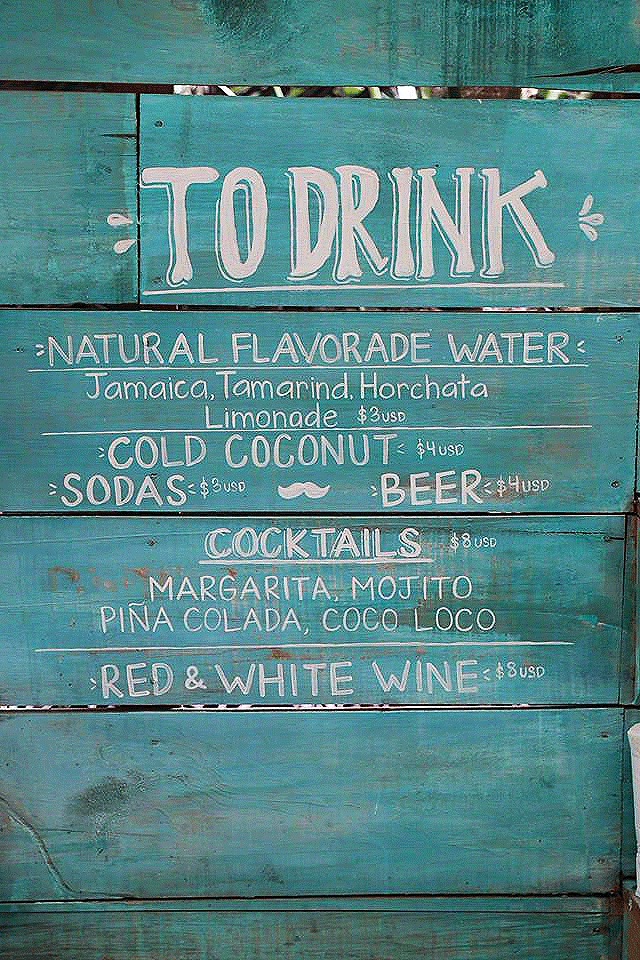 TO DRINK
NATURAL FLAVORADE WATER
Jamaica, Tamarind, Horchata
Limonade $3USD
COLD COCONUT $4USD
SODAS $3USD BEER $4USD
COCKTAILS $8USD
MARGARITA, MOJITO
PIÑA COLADA, COCO LOCO
RED & WHITE WINE $8USD